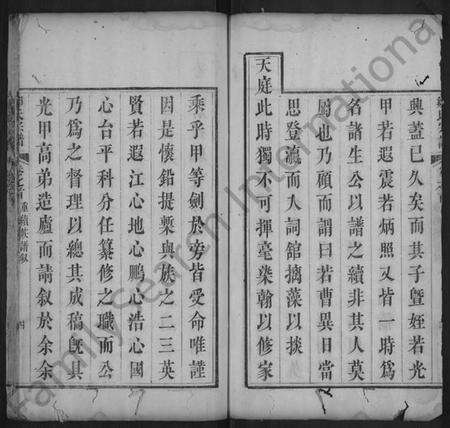 興蓋已久矣而其子曁姪若光
甲若遐震若炳照又皆一時爲
名諸生公以譜之續非其人莫
屬也乃顧而謂曰若曹異日當
思登瀛而入詞舘摛藻以掞
天庭此時獨不可揮毫染翰以修家
乘乎甲等劍於旁皆受命唯謹
因是懷鉛提槧與族之二三英
賢若遐江心地心鵬心浩心國
心台平科分任纂修之職而公
乃爲之督理以總其成稿旣具
光甲高弟造廬而請叙於余余
重續族譜叙
四
Family Search International